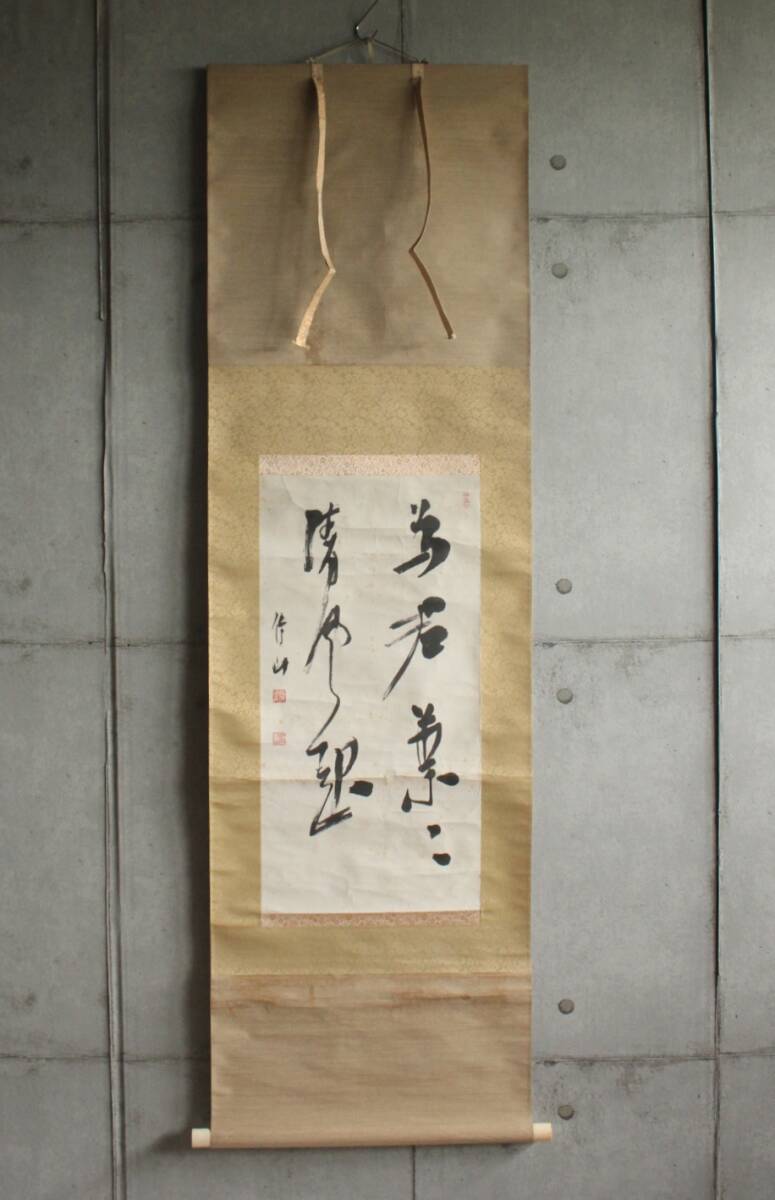 為君葉々
清風起